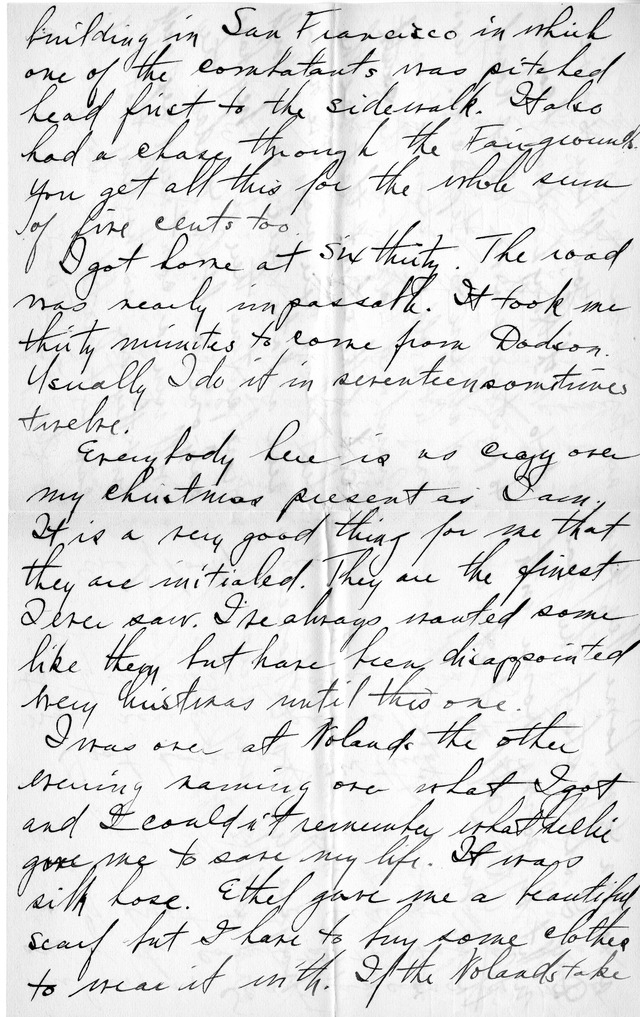 building in San Francisco in which
one of the combatants was pitched
head first to the sidewalk. It also
had a chase through the Fairgrounds.
You get all this for the whole sum
of five cents too.
I got home at six thirty. The road
was nearly impassable. It took me
thirty minutes to come from Dodson.
Usually I do it in seventeen sometimes
twelve.
Everybody here is as crazy over
my christmas present as I am.
It is a very good thing for me that
they are initialed. They are the finest
I ever saw. I've always wanted some
like them but have been disappointed
every christmas until this one.
I was over at Nolands the other
evening naming over what I got
and I couldn't remember what Nellie
gave me to save my life. It was
silk hose. Ethel gave me a beautiful
scarf but I have to buy some clothes
to wear it with. If the Nolands take